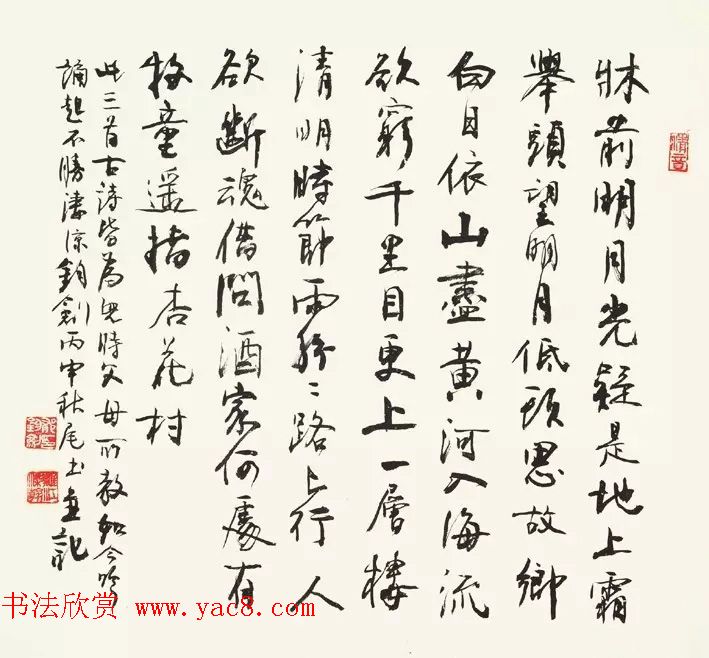 牀前明月光疑是地上霜
舉頭望明月低頭思故鄉
白日依山盡黃河入海流
欲窮千里目更上一層樓
清明時節雨紛〻路上行人
欲斷魂借問酒家何處有
牧童遥指杏花村
此三首古詩皆為兒時父母所教如今吟
誦起不勝淒涼鈞劍丙申秋尾書並記
书法欣赏 www.yac8.com